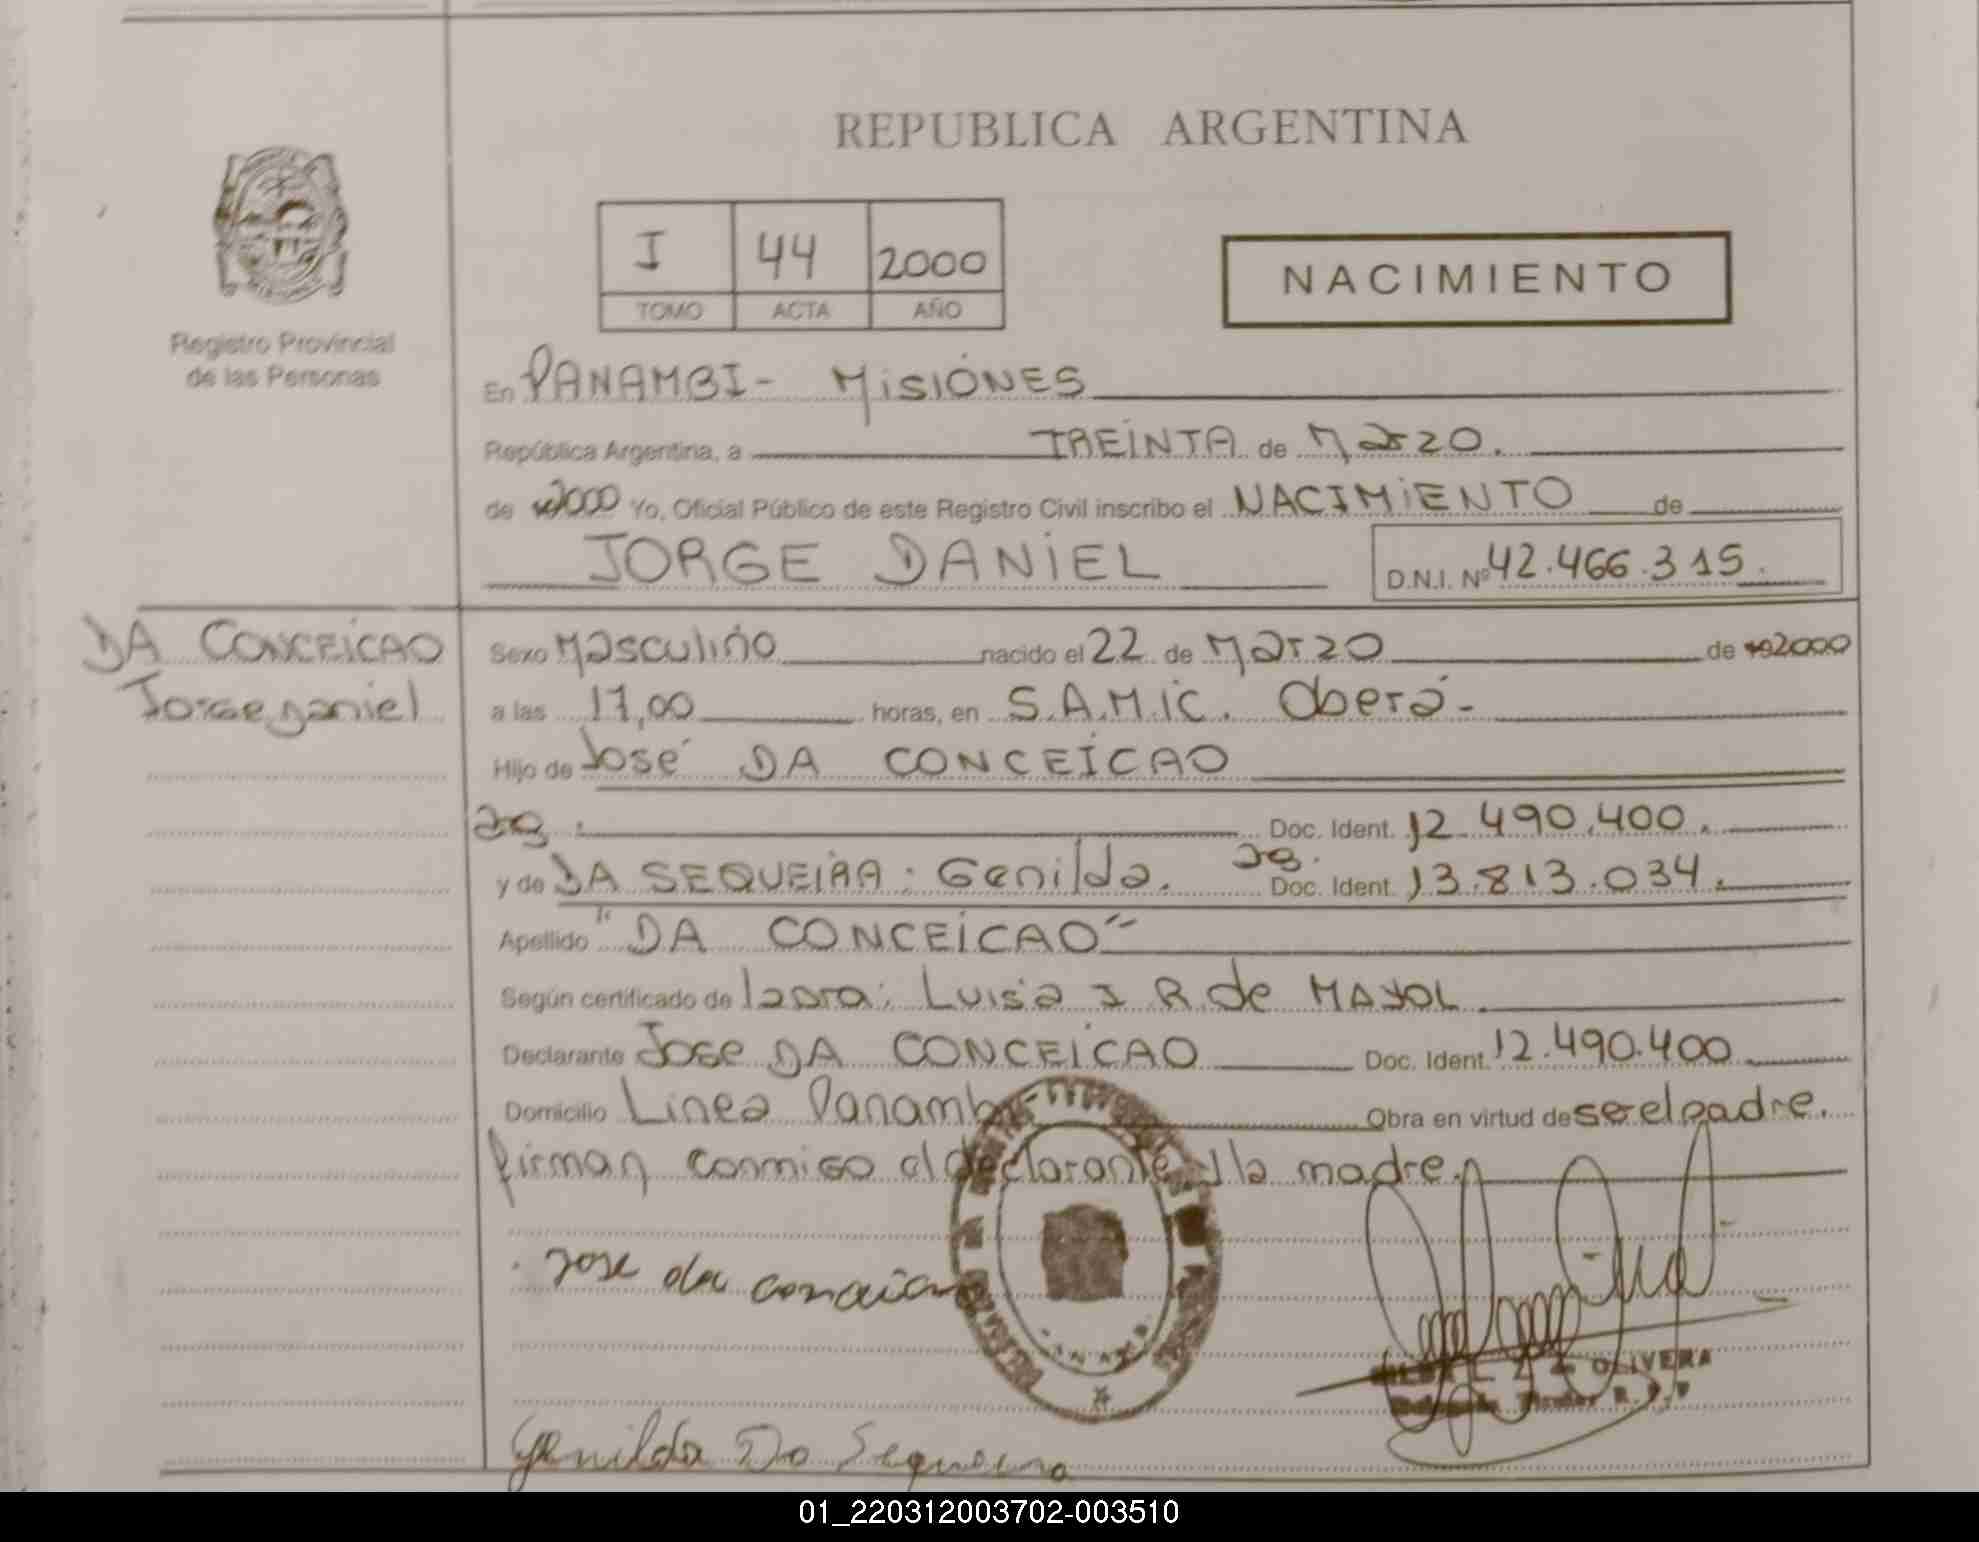 REPUBLICA ARGENTINA
I 44 2000
TOMO ACTA AÑO
NACIMIENTO
Registro Provincial
de las Personas
En PANAMBI - MISIONES
República Argentina, a TREINTA de Marzo.
de 2000 Yo, Oficial Público de este Registro Civil inscribo el NACIMIENTO de
JORGE DANIEL D.N.I. Nº 42.466.315.
DA CONCEICAO
Jorge Daniel
Sexo Masculino nacido el 22 de Marzo de 192000
a las 17,00 horas, en S.A.M.I.C. Oberá -
Hijo de José DA CONCEICAO
ag. Doc. Ident. 12.490.400.
y de DA SEQUEIRA: Genilda. ag. Doc. Ident. 13.813.034.
Apellido "DA CONCEICAO"
Según certificado de Luisa I R. de MAYOL
Declarante Jose DA CONCEICAO Doc. Ident. 12.490.400
Domicilio Linea Panambi Obra en virtud de ser el padre.
firman conmigo el declarante y la madre.
Jose da conceicao
OLIVERA
Genilda Da Sequeira
01_220312003702-003510